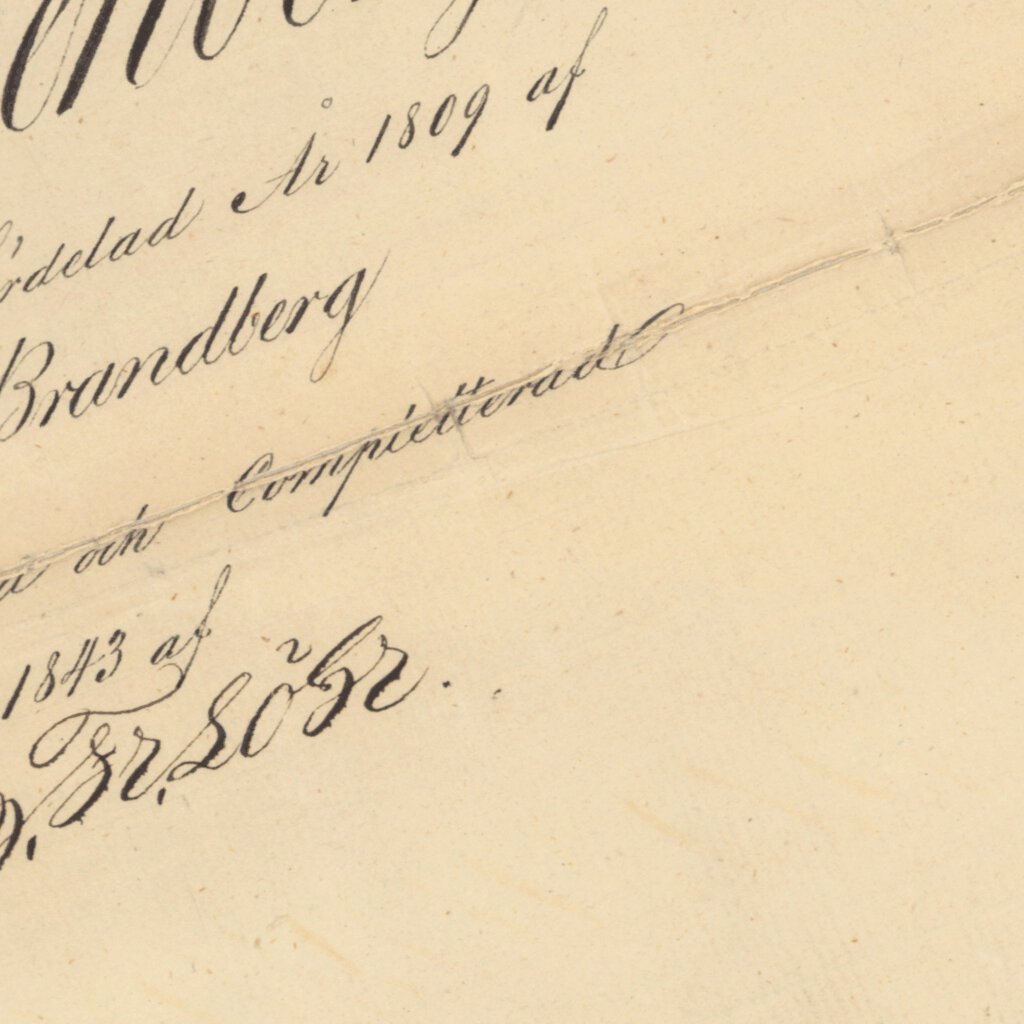 ördelad År 1809 af
Brandberg
och Completterad
1843 af
D. Fr. Löhr.